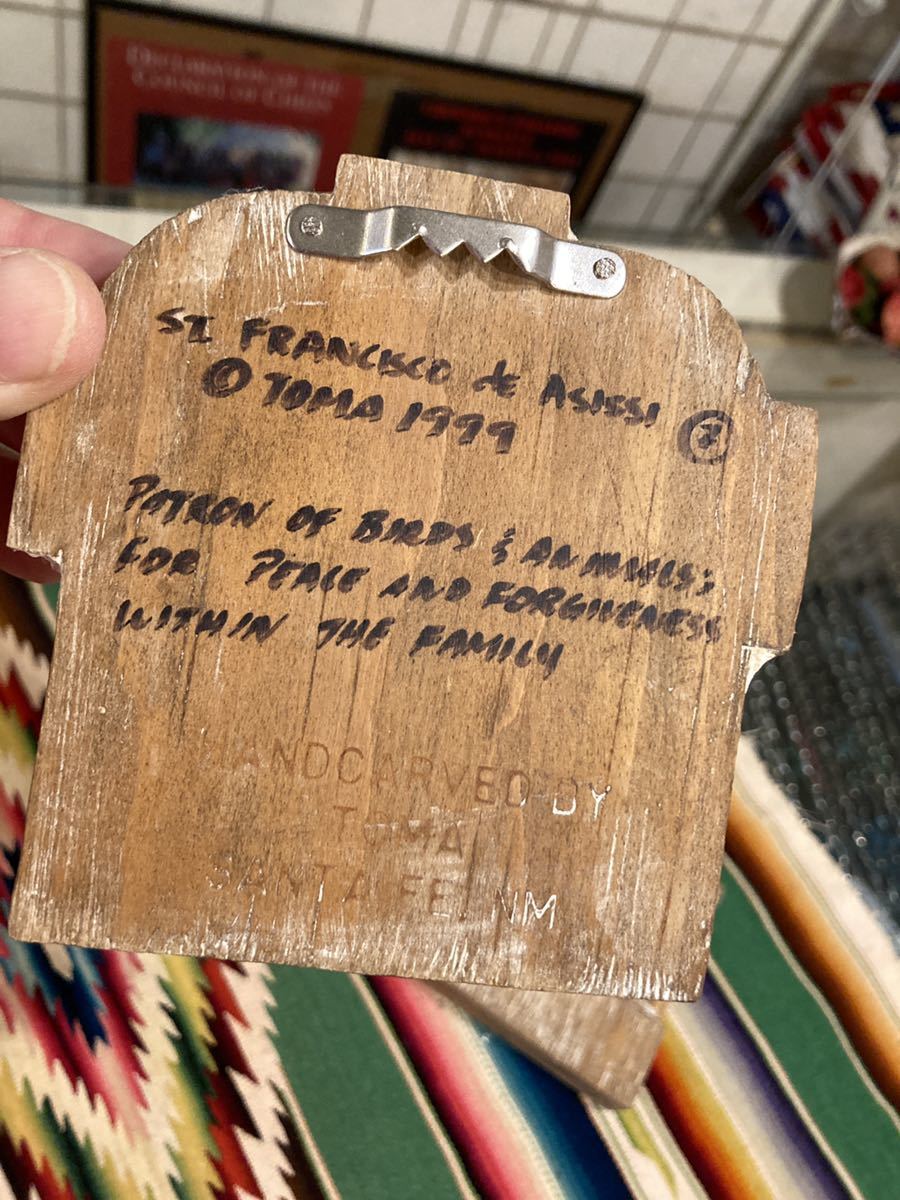 DECLARATION OF THE
COUNCIL OF CHIEFS
ST FRANCISCO de ASISSI
© TOMA 1999
PATRON OF BIRDS & ANIMALS;
FOR PEACE AND FORGIVENESS
WITHIN THE FAMILY
HANDCARVED BY
TOMA
SANTA FE, NM